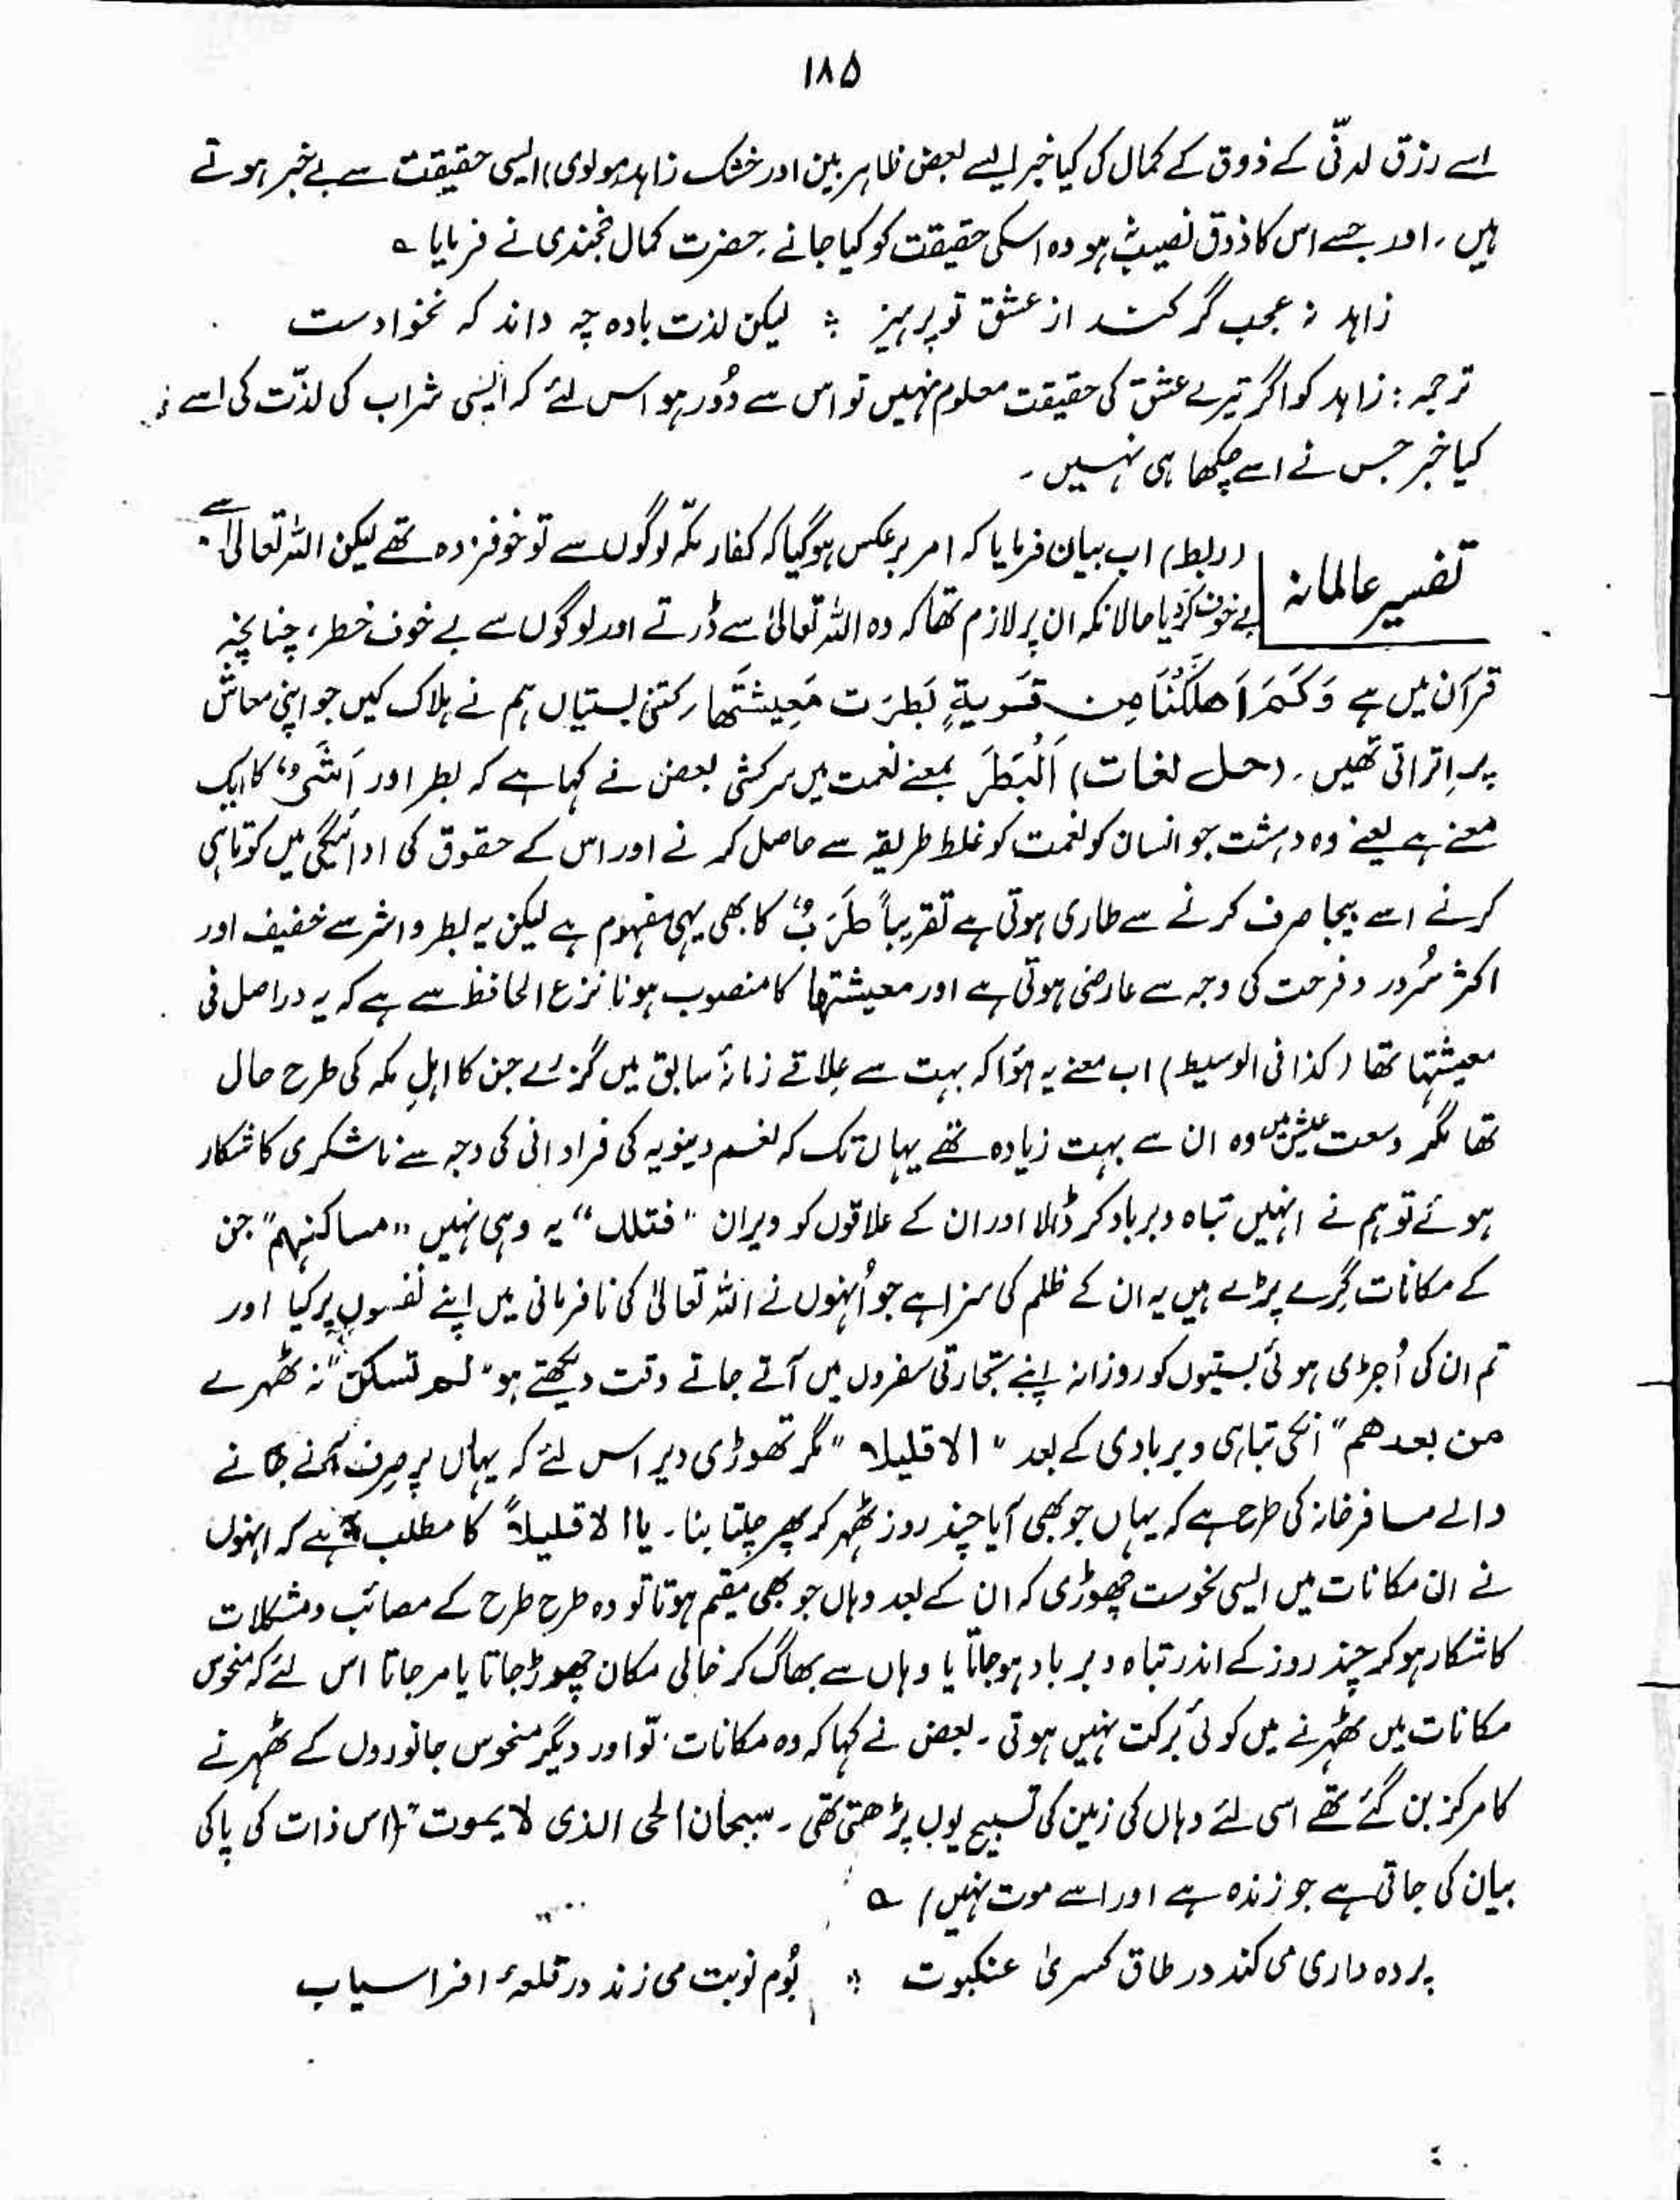 ۱۸۵
اسے رزق لدنّی کے ذوق کے کمال کی کیا خبر ایسے بعض ظاہر بین اور خشک زاہد (مولوی) ایسی حقیقت سے بے خبر ہوتے
ہیں ۔ اور جسے اس کا ذوق نصیب ہو وہ اسکی حقیقت کو کیا جانے ۔ حضرت کمال خجندی نے فرمایا ؎
زاہد نہ عجب گر کند از عشق تو پرہیز ؛ لیکن لذت بادہ چہ داند کہ نخوادست
ترجمہ : زاہد کو اگر تیرے عشق کی حقیقت معلوم نہیں تو اس سے دُور ہو اس لئے کہ ایسی شراب کی لذّت کی اسے
کیا خبر جس نے اسے چکھا ہی نہیں ۔
تفسیر عالمانہ (ربط) اب بیان فرمایا کہ امر برعکس ہوگیا کہ کفار مکّہ لوگوں سے تو خوفزدہ تھے لیکن اللہ تعالیٰ سے
بے خوف کردیا حالانکہ ان پر لازم تھا کہ وہ اللہ تعالیٰ سے ڈرتے اور لوگوں سے بے خوف خطر ، چنانچہ
قرآن میں ہے وَكَمْ اَهْلَكْنَا مِنْ قَرْيَةٍ بَطِرَت مَعِيشَتَها ، کتنی بستیاں ہم نے ہلاک کیں جو اپنی معاش
پر اِتراتی تھیں ۔ (حل لغات) اَلْبَطَرَ بمعنے نعمت میں سرکشی بعض نے کہا ہے کہ بطر اور اَشَرٌ کا ایک
معنے ہے یعنے وہ دہشت جو انسان کو نعمت کو غلط طریقہ سے حاصل کرنے اور اس کے حقوق کی ادائیگی میں کوتاہی
کرنے اسے بیجا صرف کرنے سے طاری ہوتی ہے تقریباً طَرَبٌ کا بھی یہی مفہوم ہے لیکن یہ بطر و اشر سے خفیف اور
اکثر سُرور و فرحت کی وجہ سے عارضی ہوتی ہے اور معیشتہا کا منصوب ہونا نزع الحافظ سے ہے کہ یہ دراصل فی
معیشتہا تھا (کذا فی الوسیط) اب معنے یہ ہوٗا کہ بہت سے علاقے زمانۂ سابق میں گزرے جن کا اہلِ مکہ کی طرح حال
تھا مگر وسعت عیش میں وہ ان سے بہت زیادہ تھے یہاں تک کہ نعم دینویہ کی فراوانی کی وجہ سے ناشکری کا شکار
ہوئے تو ہم نے انہیں تباہ و برباد کر ڈالا اور ان کے علاقوں کو ویران "فتلك" یہ وہی نہیں "مساكنهم" جن
کے مکانات گرے پڑے ہیں یہ ان کے ظلم کی سزا ہے جو اُنہوں نے اللہ تعالیٰ کی نافرمانی میں اپنے نفسوں پر کیا اور
تم ان کی اُجڑی ہوئی بستیوں کو روزانہ اپنے تجارتی سفروں میں آتے جاتے وقت دیکھتے ہو "لم تسكن" نہ ٹھہرے
من بعدهم" انکی تباہی و بربادی کے بعد "الا قلیلا" مگر تھوڑی دیر اس لئے کہ یہاں پر صِرف آنے جانے
والے مسافر خانہ کی طرح ہے کہ یہاں جو بھی آیا چند روز ٹھہر کر پھر چلتا بنا ۔ یا الا قلیلاً کا مطلب ہے کہ انہوں
نے ان مکانات میں ایسی نحوست چھوڑی کہ ان کے بعد وہاں جو بھی مقیم ہوتا تو وہ طرح طرح کے مصائب و مشکلات
کا شکار ہو کر چند روز کے اندر تباہ و برباد ہوجاتا یا وہاں سے بھاگ کر خالی مکان چھوڑ جاتا یا مر جاتا اس لئے کہ منحوس
مکانات میں ٹھہرنے میں کوئی برکت نہیں ہوتی ۔ بعض نے کہا کہ وہ مکانات اُلّو اور دیگر منحوس جانوروں کے ٹھہرنے
کا مرکز بن گئے تھے اسی لئے وہاں کی زمین کی تسبیح یوں پڑھتی تھی ۔ سبحان الحی الذی لا یموت " (اس ذات کی پاکی
بیان کی جاتی ہے جو زندہ ہے اور اسے موت نہیں) ؎
پردہ داری می کند در طاق کسریٰ عنکبوت ؛ بُوم نوبت می زند در قلعۂ افراسیاب